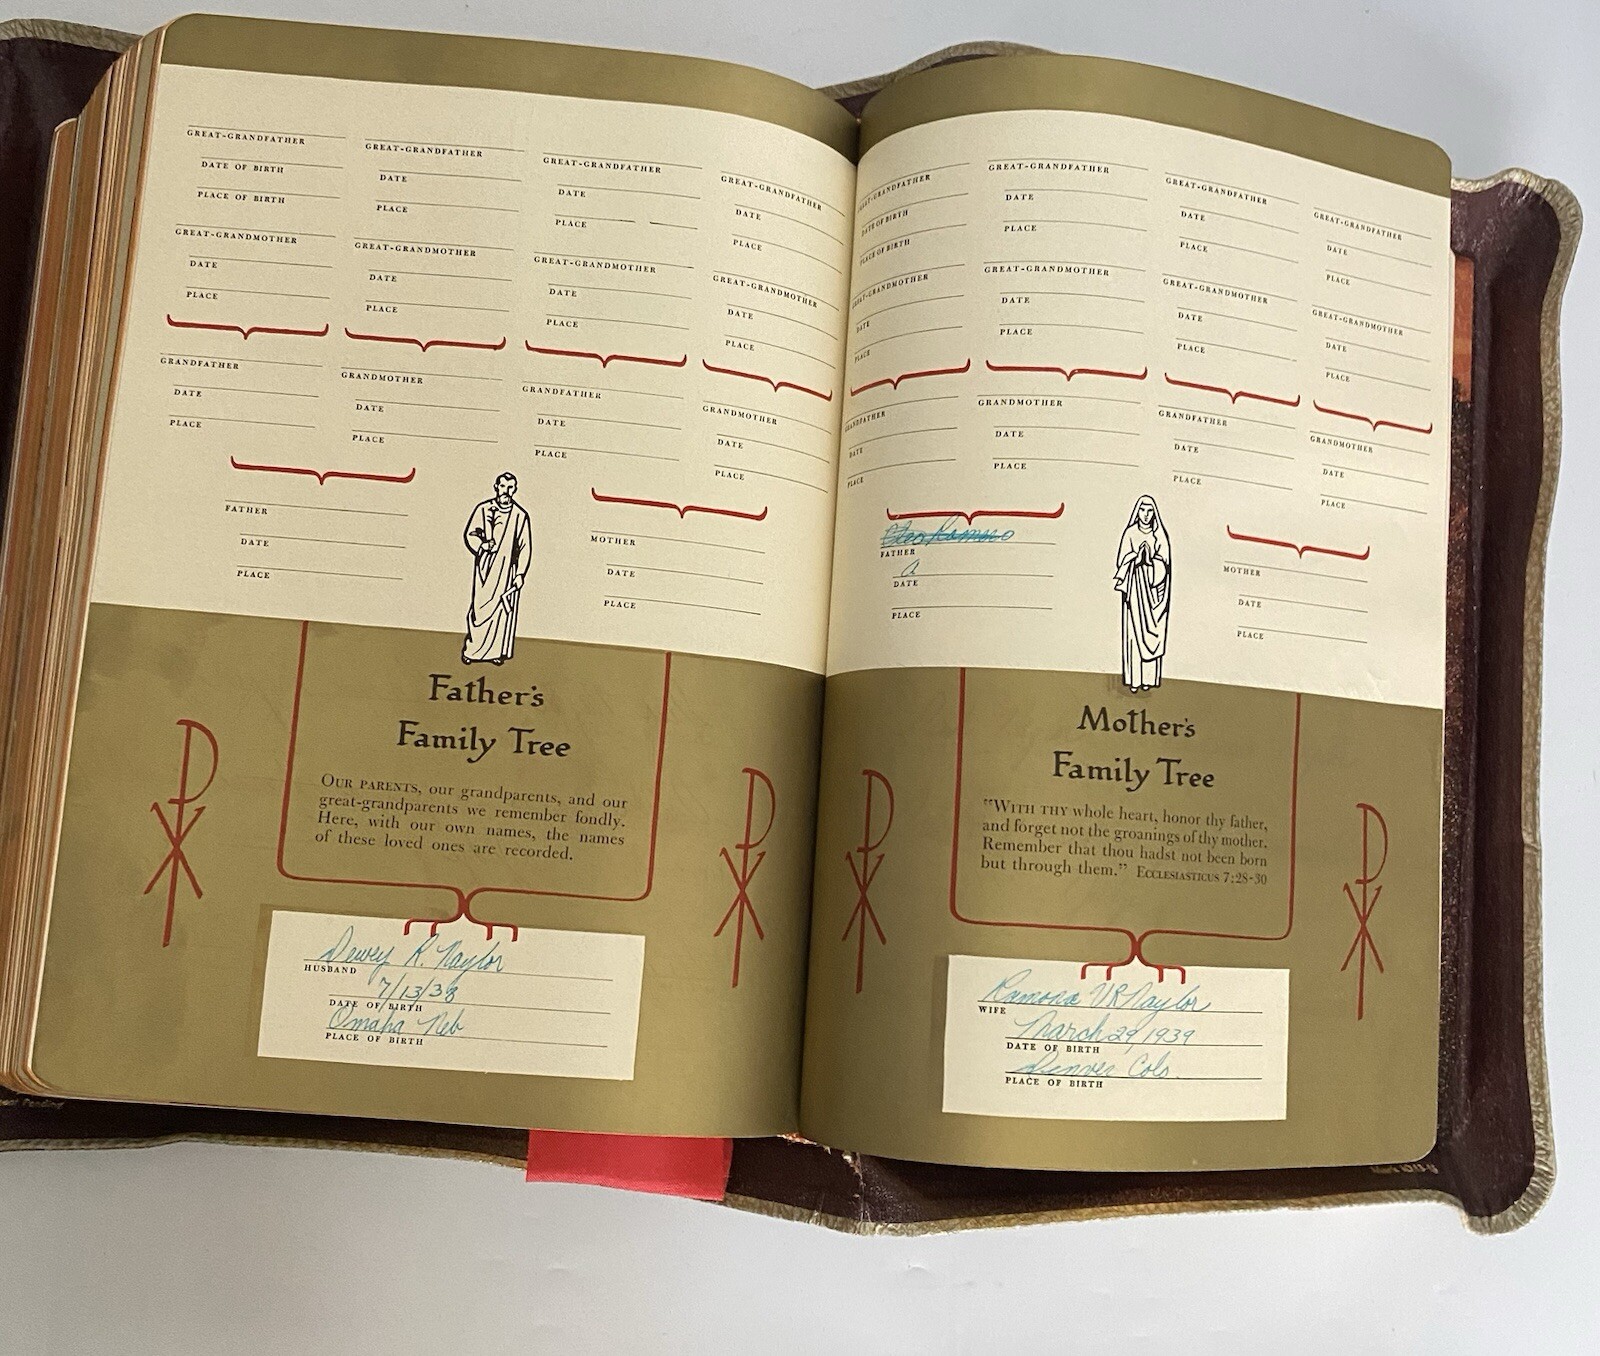 GREAT-GRANDFATHER
DATE OF BIRTH
PLACE OF BIRTH
GREAT-GRANDMOTHER
DATE
PLACE
GREAT-GRANDFATHER
DATE
PLACE
GREAT-GRANDMOTHER
DATE
PLACE
GREAT-GRANDFATHER
DATE
PLACE
GREAT-GRANDMOTHER
DATE
PLACE
GREAT-GRANDFATHER
DATE
PLACE
GREAT-GRANDMOTHER
DATE
PLACE
GRANDFATHER
DATE
PLACE
GRANDMOTHER
DATE
PLACE
GRANDFATHER
DATE
PLACE
GRANDMOTHER
DATE
PLACE
FATHER
DATE
PLACE
MOTHER
DATE
PLACE
Father's
Family Tree
OUR PARENTS, our grandparents, and our
great-grandparents we remember fondly.
Here, with our own names, the names
of these loved ones are recorded.
Dewey R. Naylor
HUSBAND
7/13/38
DATE OF BIRTH
Omaha Neb
PLACE OF BIRTH
GREAT-GRANDFATHER
DATE OF BIRTH
PLACE OF BIRTH
GREAT-GRANDMOTHER
DATE
PLACE
GREAT-GRANDFATHER
DATE
PLACE
GREAT-GRANDMOTHER
DATE
PLACE
GREAT-GRANDFATHER
DATE
PLACE
GREAT-GRANDMOTHER
DATE
PLACE
GREAT-GRANDFATHER
DATE
PLACE
GREAT-GRANDMOTHER
DATE
PLACE
GRANDFATHER
DATE
PLACE
GRANDMOTHER
DATE
PLACE
GRANDFATHER
DATE
PLACE
GRANDMOTHER
DATE
PLACE
Romero
FATHER
a
DATE
PLACE
MOTHER
DATE
PLACE
Mother's
Family Tree
"WITH THY whole heart, honor thy father,
and forget not the groanings of thy mother.
Remember that thou hadst not been born
but through them." ECCLESIASTICUS 7:28-30
Ramona VR Naylor
WIFE
March 29, 1939
DATE OF BIRTH
Denver Colo.
PLACE OF BIRTH